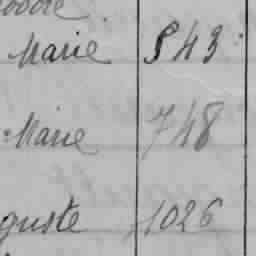 Marie 843
Marie 748
guste 1026